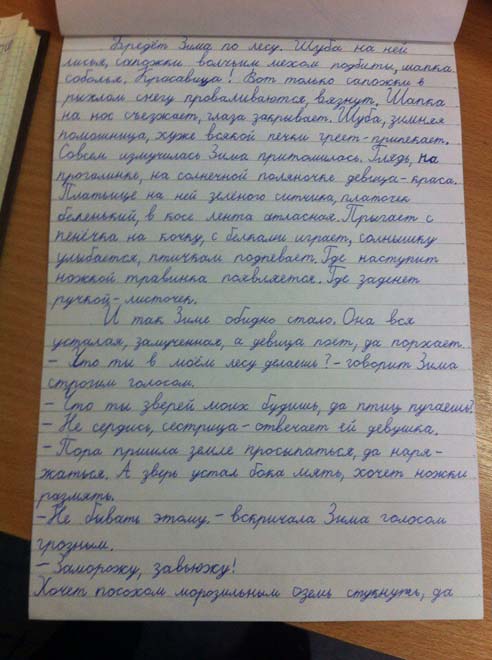 Бредёт Зима по лесу. Шуба на ней
лисья, сапожки волчьим мехом подбиты, шапка
соболья. Красавица! Вот только сапожки в
рыхлом снегу проваливаются, вязнут. Шапка
на нос съезжает, глаза закрывает. Шуба, зимняя
помошница, хуже всякой печки греет-припекает.
Совсем измучилась Зима притомилась. Глядь, на
прогалинке, на солнечной поляночке девица-краса.
Платьице на ней зелёного ситчика, платочек
беленький, в косе лента атласная. Прыгает с
пенёчка на кочку, с белками играет, солнышку
улыбается, птичкам подпевает. Где наступит
ножкой травинка появляется. Где заденет
ручкой-листочек.
И так Зиме обидно стало. Она вся
усталая, замученная, а девица поёт, да порхает.
- Что ты в моём лесу делаешь? - говорит Зима
строгим голосом.
- Что ты зверей моих будишь, да птиц пугаешь?
- Не сердись, сестрица - отвечает ей девушка.
- Пора пришла земле просыпаться, да наря-
жаться. А зверь устал бока мять, хочет ножки
размять.
- Не бывать этому. - вскричала Зима голосом
грозным.
- Заморожу, завьюжу!
Хочет посохом морозильным оземь стукнуть, да